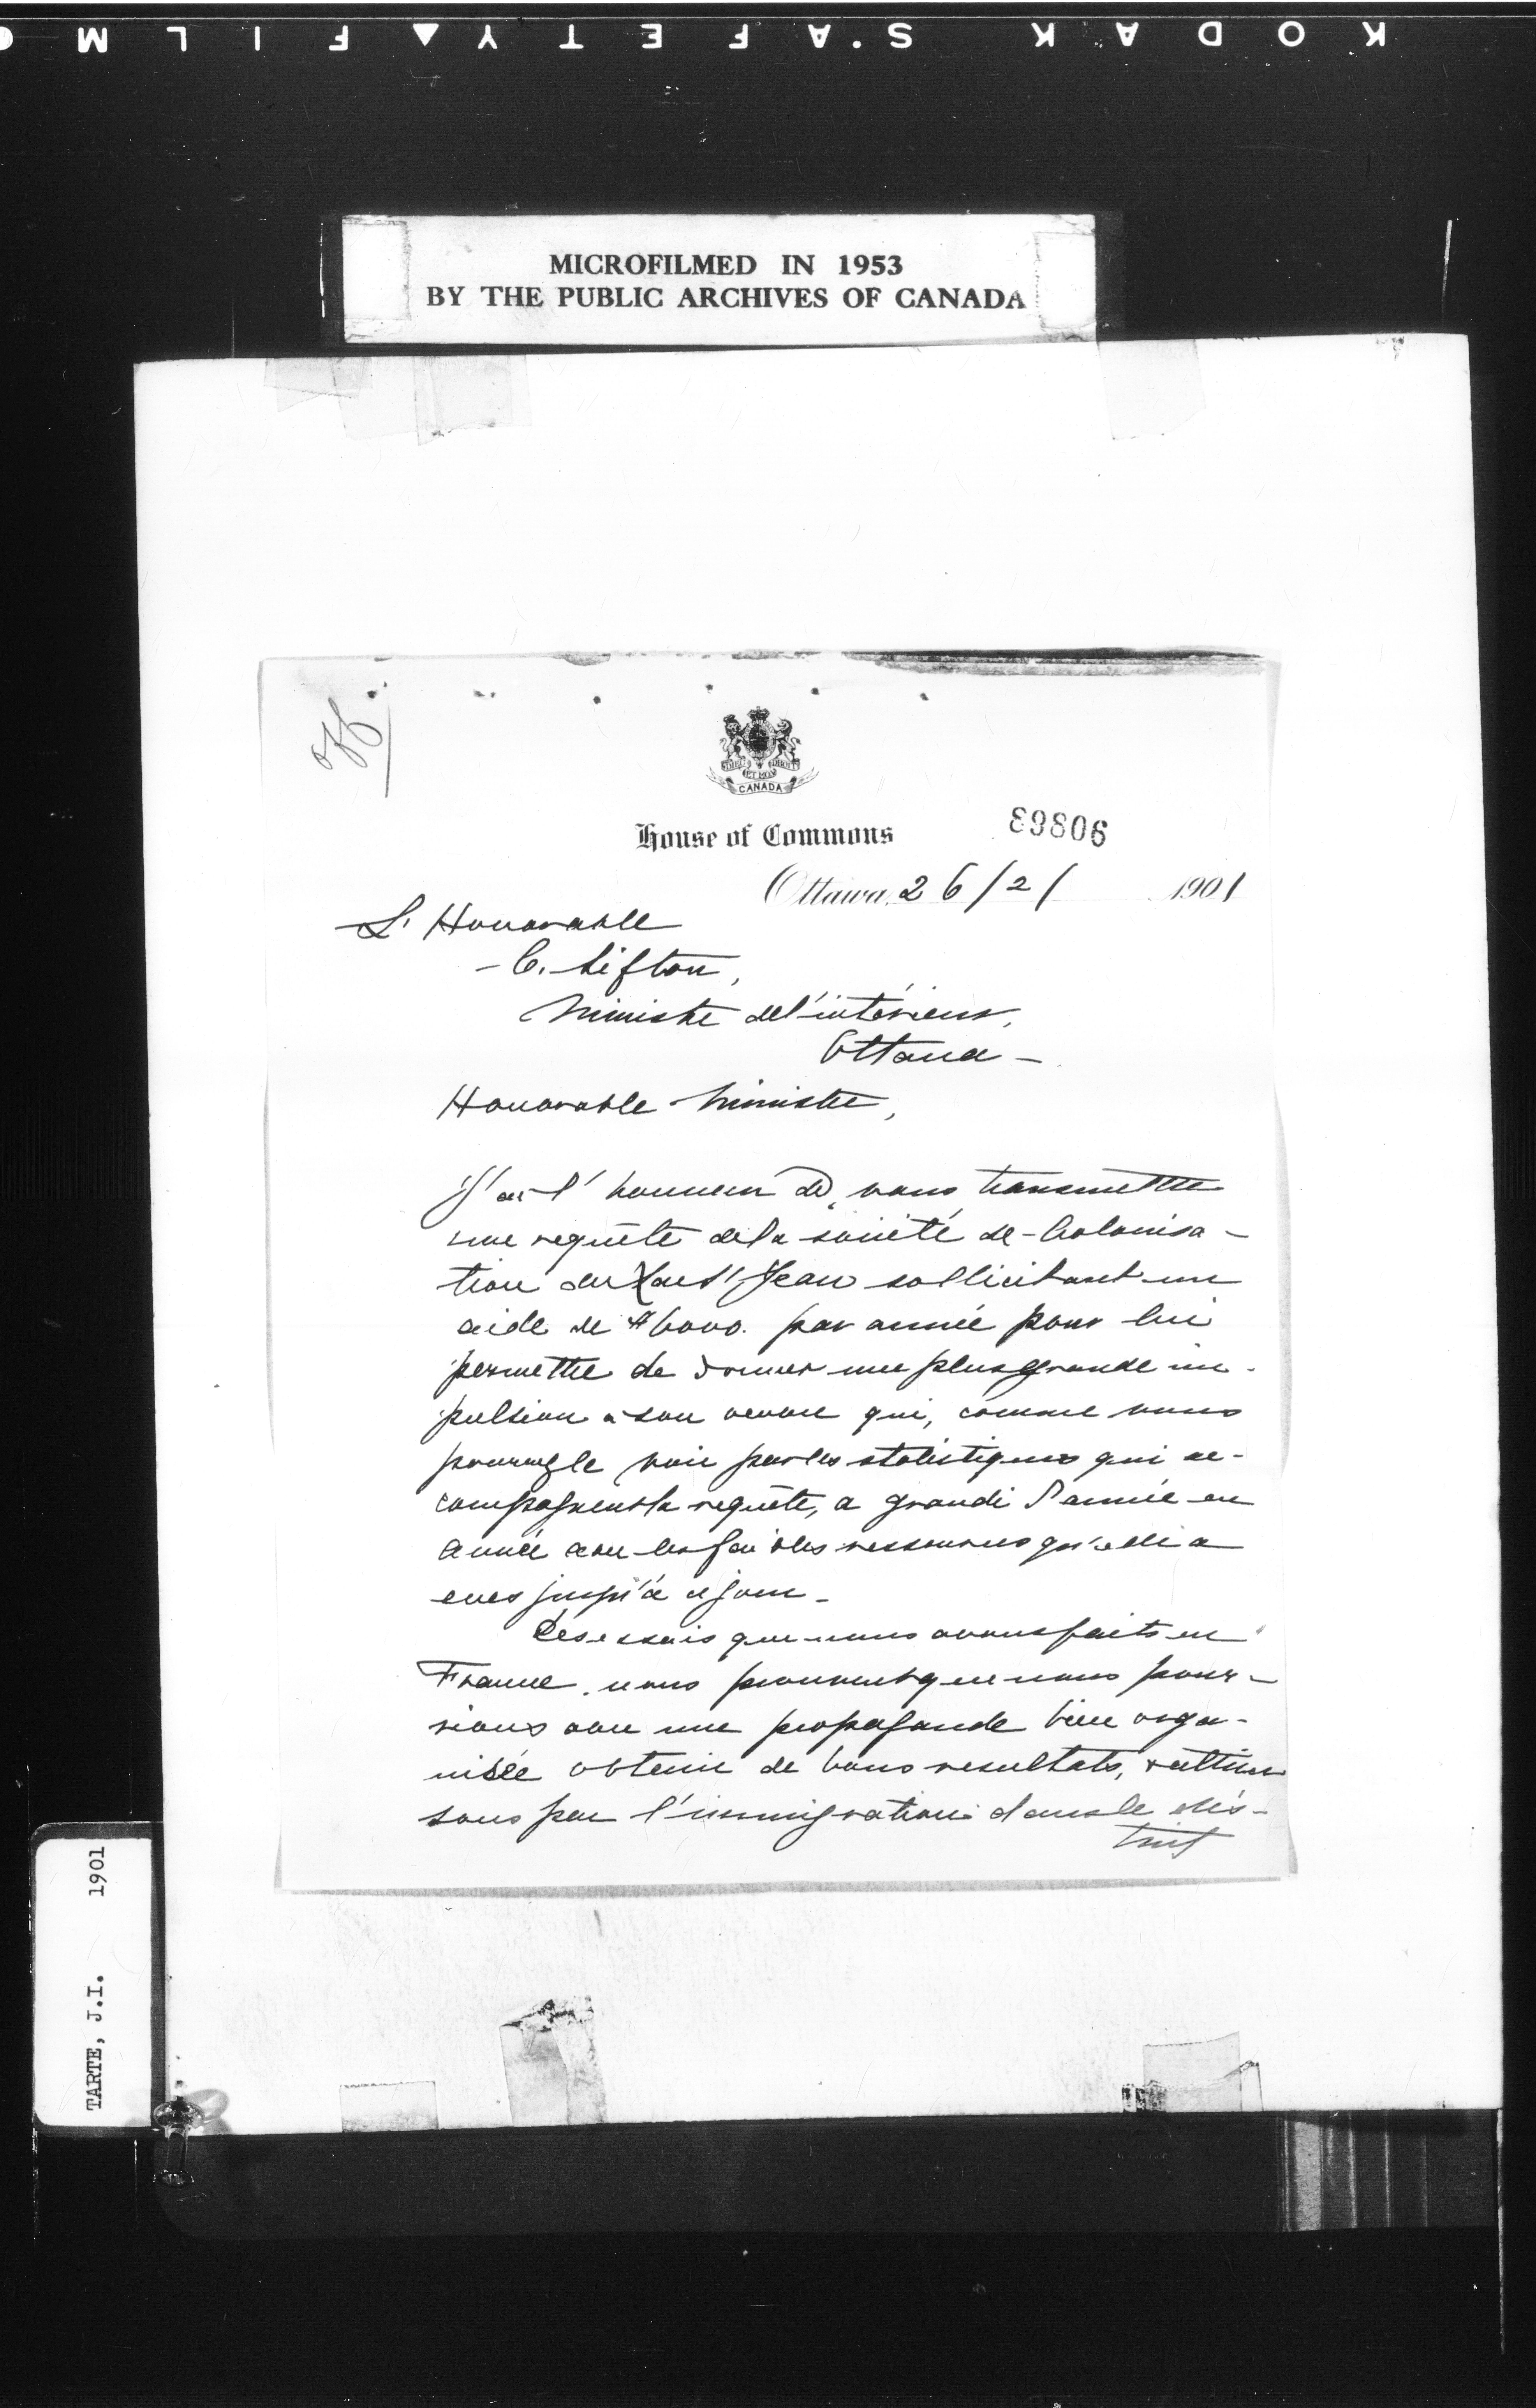 KODAK SAFETY FILM
MICROFILMED IN 1953
BY THE PUBLIC ARCHIVES OF CANADA
off
DIEU ET MON DROIT
CANADA
House of Commons
89806
Ottawa, 26/2/ 1901
L'Honorable
C. Sifton,
Ministre de l'intérieur,
Ottawa –
Honorable Ministre,
J'ai l'honneur de vous transmettre
une requête de la société de Colonisa-
tion du Lac St Jean sollicitant un
aide de $6000. par année pour lui
permettre de donner une plus grande im-
pulsion à son œuvre qui, comme vous
pourrez le voir par les statistiques qui ac-
compagnent la requête, a grandi d'année en
année avec les faibles ressources qu'elle a
eues jusqu'à ce jour –
Les essais que nous avons faits en
France nous prouvent que nous pour-
rions avec une propagande bien orga-
nisée obtenir de bons resultats, &
sous peu l'immigration dans le dis-
trict
TARTE, J.I. 1901